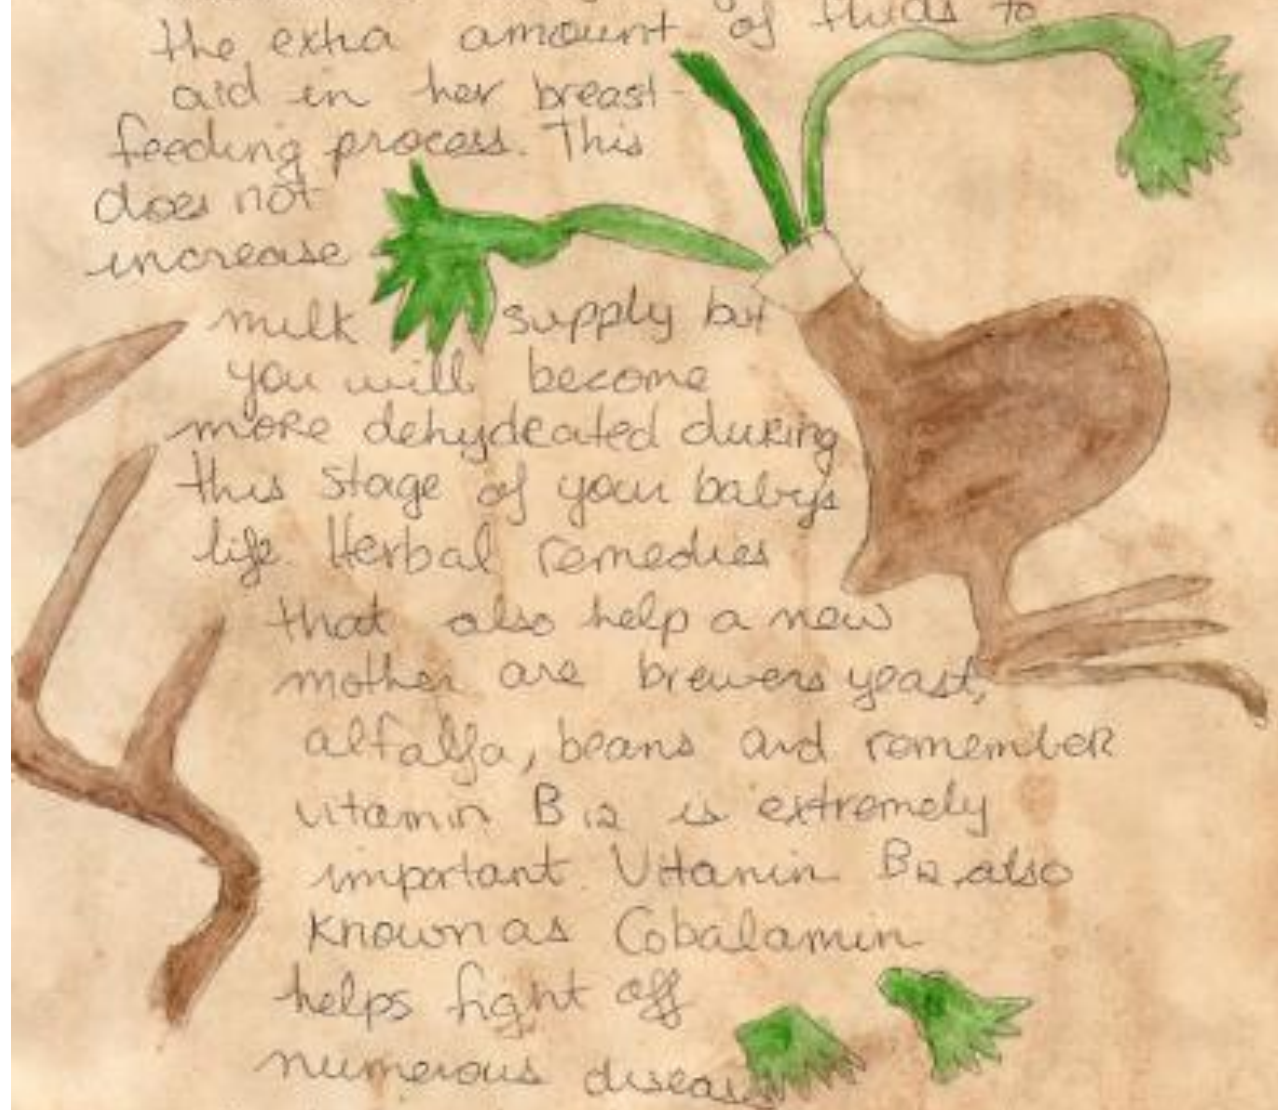 the extra amount of fluids to
aid in her breast-
feeding process. This
does not
increase
milk supply but
you will become
more dehydrated during
this stage of your baby's
life. Herbal remedies
that also help a new
mother are brewers yeast,
alfalfa, beans and remember
vitamin B12 is extremely
important. Vitamin B12 also
known as Cobalamin
helps fight off
numerous